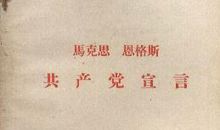 馬克思 恩格斯
共产党宣言